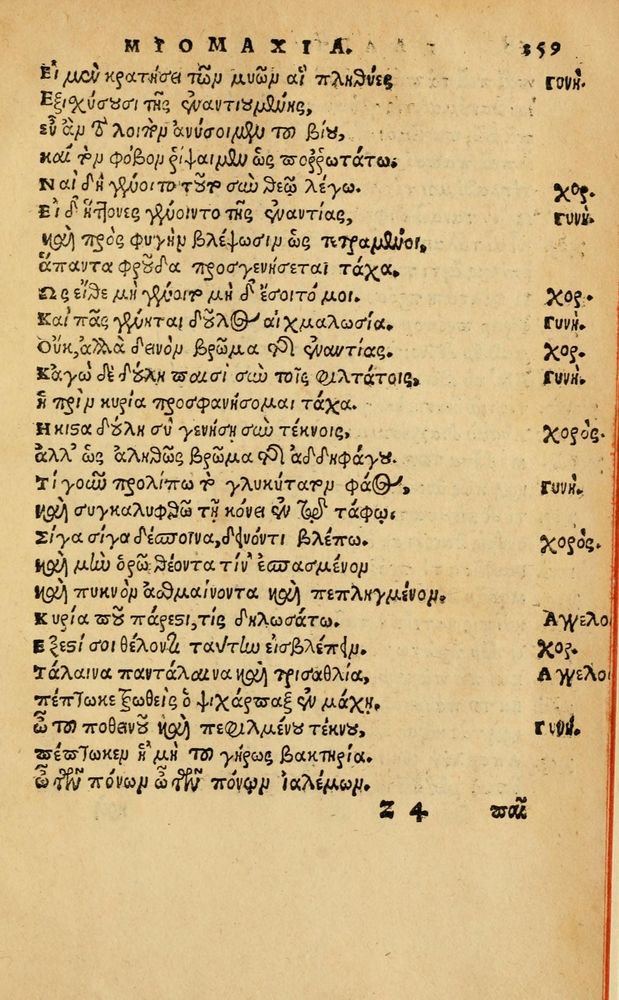 ΜΙΟΜΑΧΙΑ. 359
Εἰ μὲν κρατήσει τῶν μυῶν αἱ πληθύες γυνή.
Ἐξιχύσουσι τῆς ἐναντιουμένης,
εὖ ἂν τὸ λοιπὸν ἀνύσοιμεν τοῦ βίου,
καὶ τὸν φόβον ῥίψαιμεν ὡς ποῤῥωτάτω.
Ναὶ δὴ γένοιτο τοῦτο σὺν θεῷ λέγω. χορ.
Εἰ δ' ἥττονες γένοιντο τῆς ἐναντίας, γυνή.
καὶ πρὸς φυγὴν βλέψωσιν ὡς τετραμμένοι,
ἅπαντα φροῦδα προσγενήσεται τάχα.
Ὡς εἴθε μὴ γένοιτο μὴ δ' ἔσοιτό μοι. χορ.
Καὶ πᾶς γένηται δοῦλος αἰχμαλωσία. γυνή.
Οὐκ, ἀλλὰ δεινὸν βρῶμα τῆς ἐναντίας. χορ.
Κἀγὼ δὲ δούλη παισὶ σὺν τοῖς φιλτάτοις, γυνή.
ἡ πρὶν κυρία προσφανήσομαι τάχα.
Ηκιστα δούλη σὺ γενήσῃ σὺν τέκνοις, χορός.
ἀλλ' ὡς ἀληθῶς βρῶμα τῆς ἀδδηφάγου.
Τί γοῦν προλίπω τὸ γλυκύτατον φάος, γυνή.
καὶ συγκαλυφθῶ τῇ κόνει ἐν τῷ τάφῳ.
Σίγα σίγα δέσποινα, δεινόν τι βλέπω. χορός.
καὶ μὴν ὁρῶ θέοντα τίν' ἐσπασμένον
καὶ πυκνὸν ἀσθμαίνοντα καὶ πεπληγμένον.
Κυρία ποῦ πάρεστι, τὶς δηλωσάτω. Ἄγγελο
Εξεστί σοι θέλοντι ταύτην εἰσβλέπειν. χορ.
Τάλαινα παντάλαινα καὶ τρισαθλία, Ἄγγελο
πέπτωκε ξωθεὶς ὁ ψιχάρπαξ ἐν μάχῃ.
ὦ τοῦ ποθεινοῦ καὶ πεφιλμένου τέκνου, γυνή.
πέπτωκεν ἡ μὴ τοῦ γήρως βακτηρία.
ὦ τῶν πόνων ὦ τῶν πόνων ἰαλέμων.
Z 4 παῖ